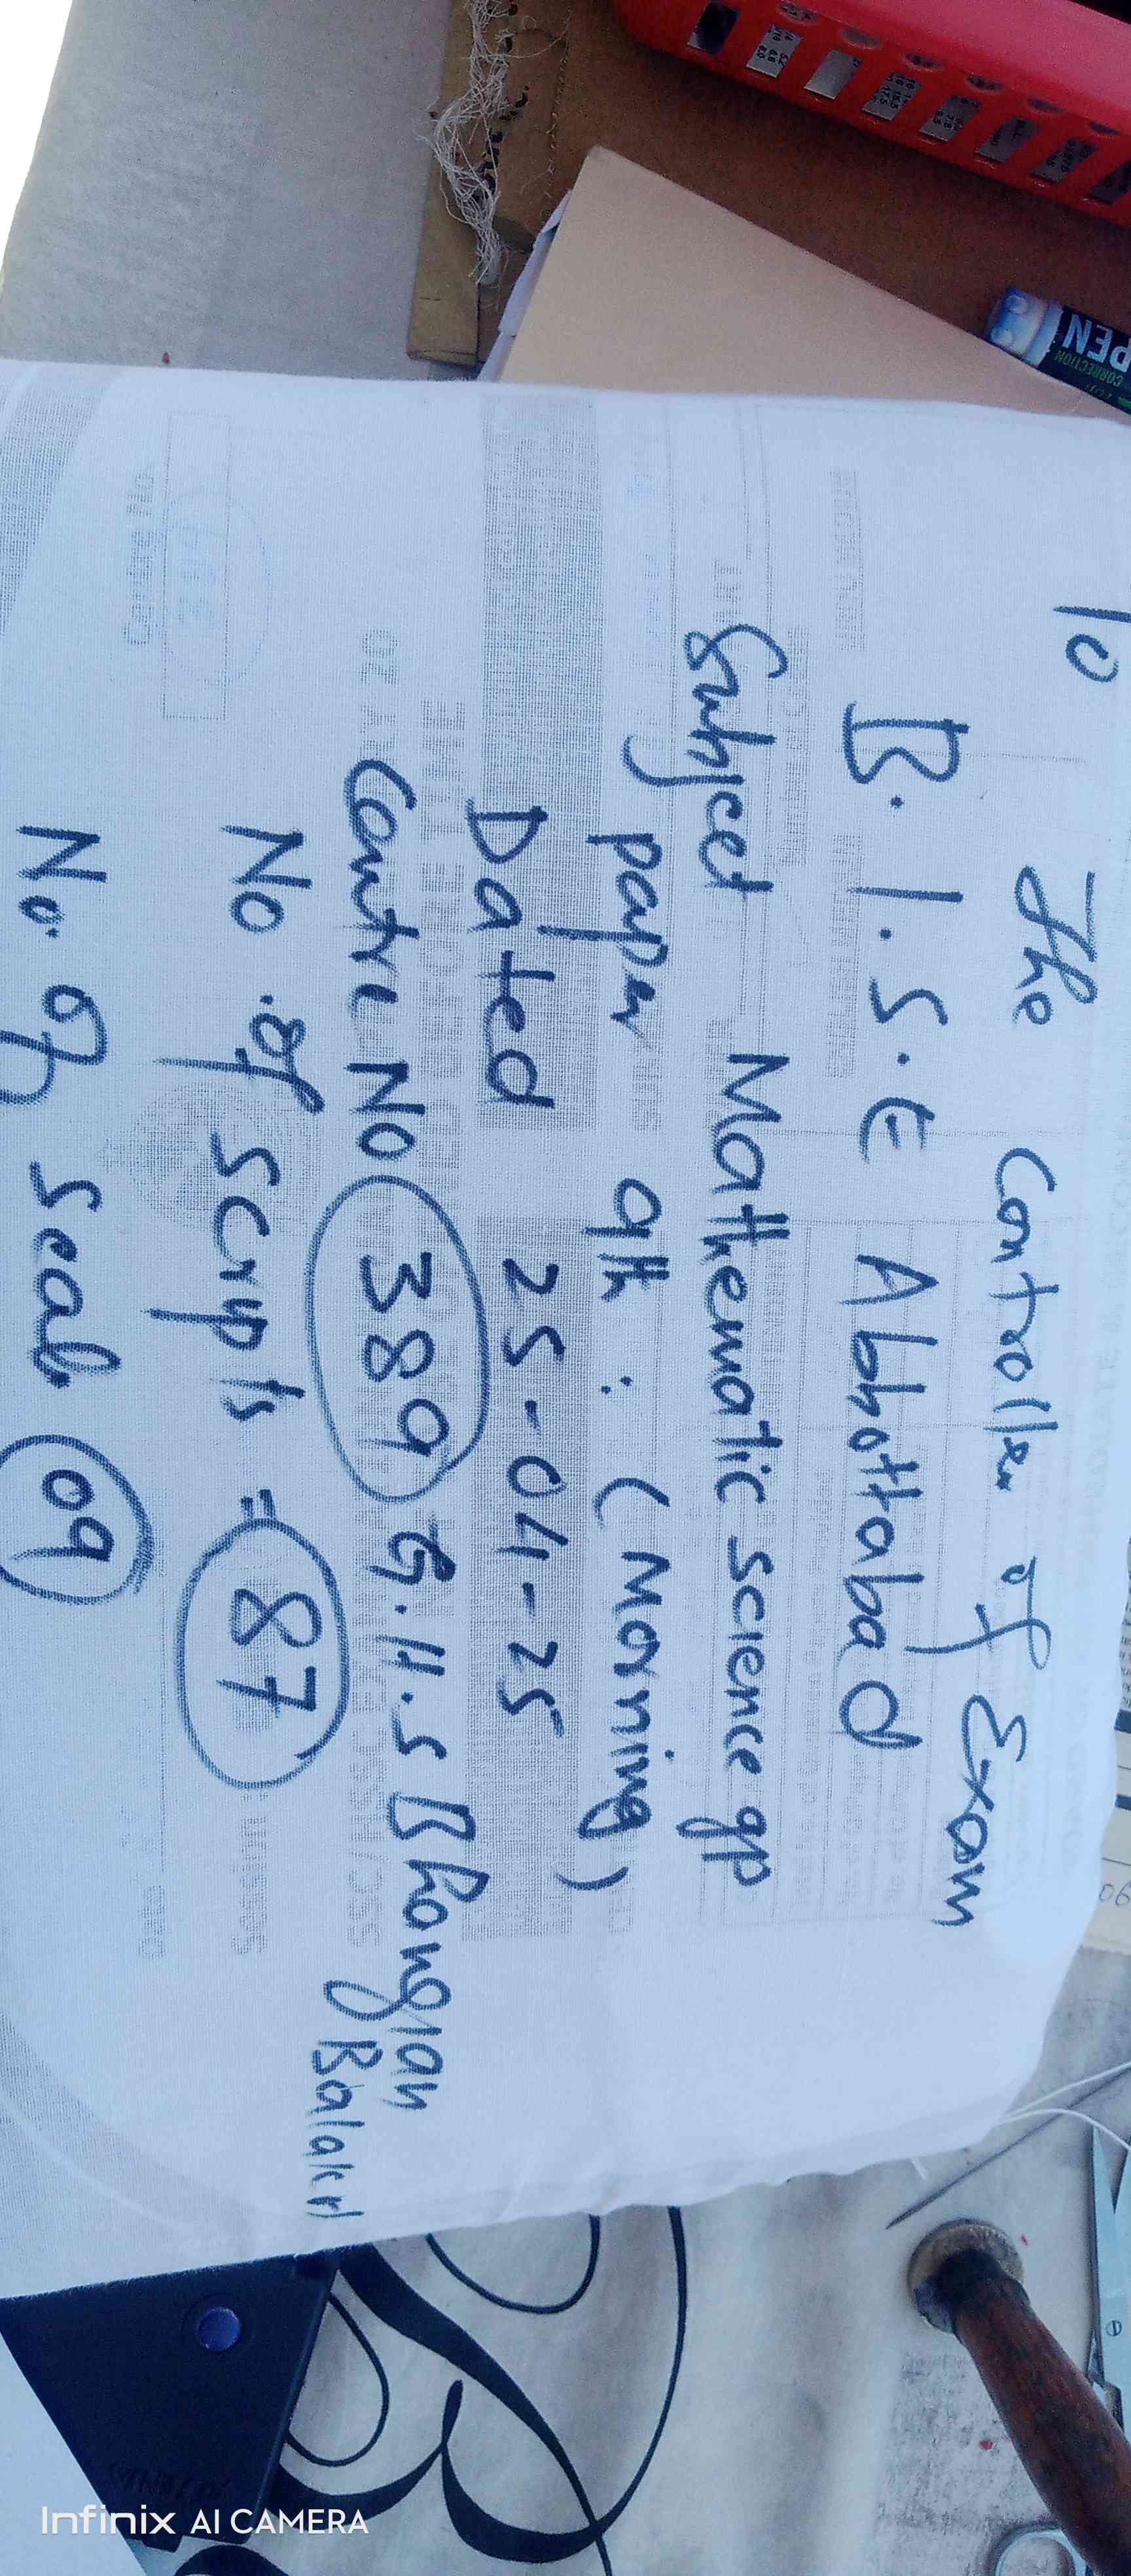 To
The Controller of Exam
B.I.S.E Abbottabad
Subject Mathematic science gp
paper 9th : (Morning)
Dated 25-04-25
Centre No 389 G.H.S Bhongian
Balakot
No. of Scripts = 87
No. of Seal 09
PEN
CORRECTION
06
Infinix AI CAMERA